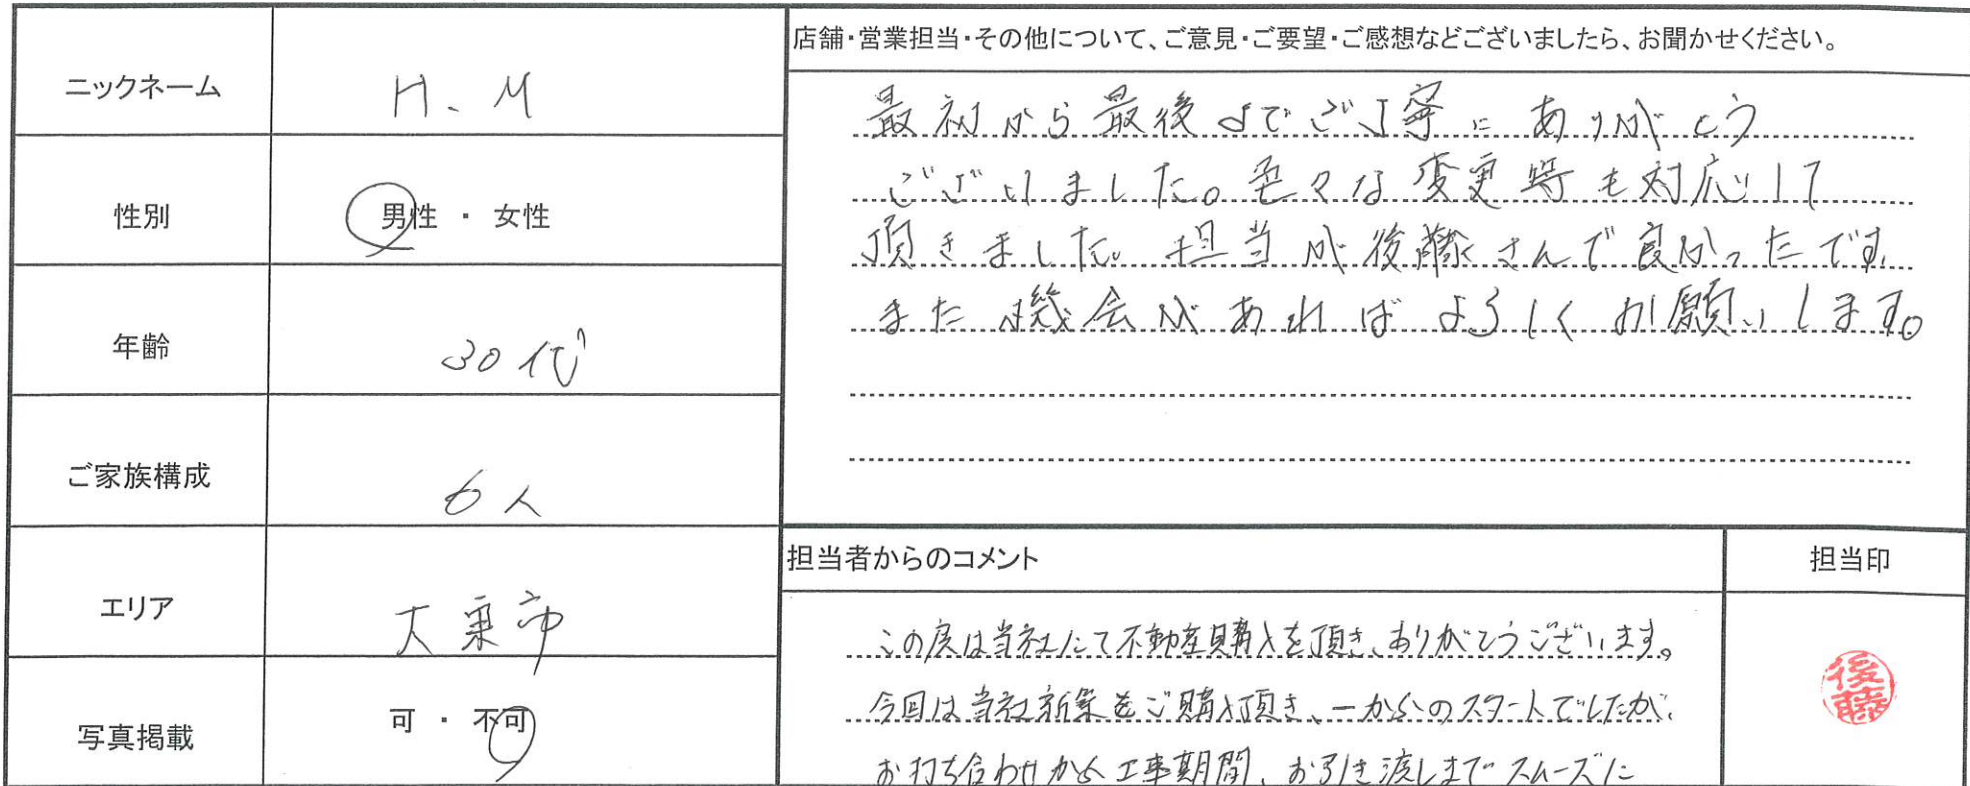 ニックネーム
H.M
性別
男性 ・ 女性
年齢
30代
ご家族構成
6人
エリア
大東市
写真掲載
可 ・ 不可
店舗・営業担当・その他について、ご意見・ご要望・ご感想などございましたら、お聞かせください。
最初から最後までご丁寧にありがとう
ございました。色々な変更等も対応して
頂きました。担当が後藤さんで良かったです。
また機会があればよろしくお願いします。
担当者からのコメント
この度は当社にて不動産購入を頂き、ありがとうございます。
今回は当社新築をご購入頂き、一からのスタートでしたが、
お打ち合わせから工事期間、お引き渡しまでスムーズに
担当印
後藤